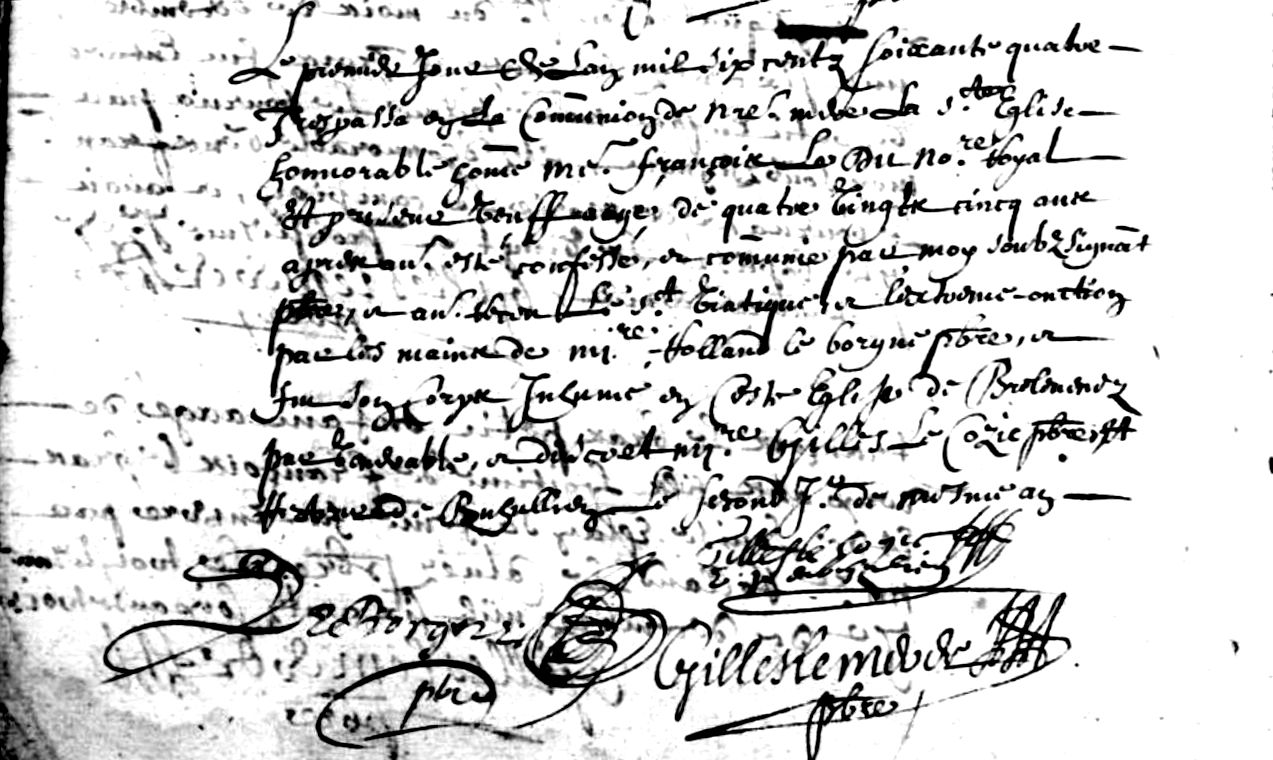 Le premier Jour de Lan mil Six centz soixante quatre
Trespassa en La Com̃union de nre. mere La S.te Eglise
honnorable hom̃e Me. françois Le Du No.re Royal
Et prieur veuff aagé de quatre vingtz cincq ans
apres av. esté confessé, et com̃unie par moy soubzsignãt
pbre, et av. receu Le S.t viatique, et l'extreme-onction
par les mains de Mi.re Rolland le borgne pbre, et
fut Son Corps Inhumé en Ceste Eglise de
par venerable, et discret Mi.re Gilles Le Cozic pbre
Recteur de Le second J.r de mesme an
Gilles le Cozic
R Le Borgne
Gilles le merdy
pbre
pbre